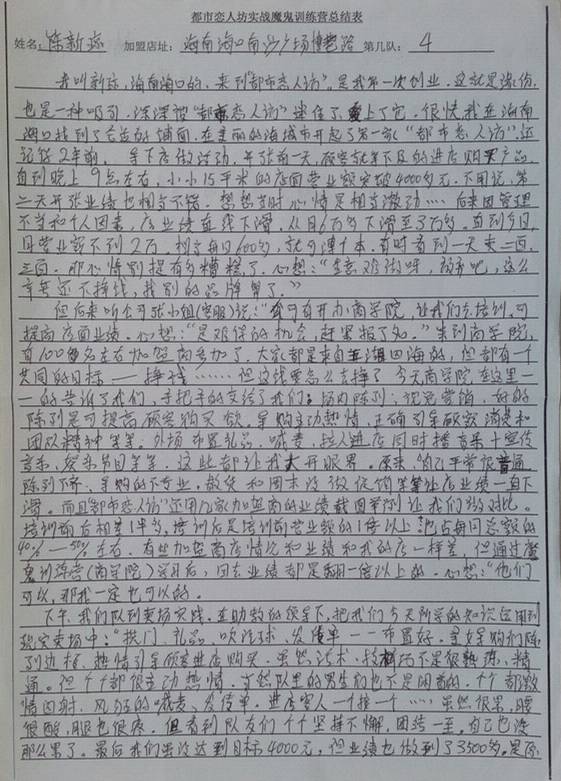 都市恋人坊实战魔鬼训练营总结表
姓名：陈新琼 加盟店址：海南海口南沙广场博爱路 第几队：4
我叫新琼，海南海口的，来到“都市恋人访”。是我第一次创业，这就是缘份，
也是一种吸引，深深被“都市恋人访”迷住了，爱上了它，很快我在海南
海口找到了合适的铺面，在美丽的海城市开起了第一家“都市恋人访”，还
记得2年前，拿下店做活动，开张前一天，顾客就拿下及的进店购买产品，
直到晚上9点左右，小小15平米的店面营业额突破4000多元，不用说，第
二天开张业绩也相当不错，想想当时心情是相当激动……后来因管理
不当和个人因素，店业绩直线下滑，从月6万多下滑至3万多，直到今日，
月营业额不到2万，相当每日600多，就可连个本，有时看到一天卖二百、
三百，那心情别提有多糟糕了，心想：“生意难做呀，放弃吧，这么
辛苦还不挣钱，找别的品牌算了。”
但后来听公司张小姐(客服)说：“公司有开办商学院，让我们去培训，可
提高店面业绩。心想：“是难得的机会，赶紧报了名。”来到商学院，
有100多名左右加盟商参加了，大家都是来自五湖四海的，但都有一个
共同的目标——挣钱……但这钱要怎么去挣了，今天商学院在这里一
一的告诉了我们，手把手的交给了我们：场内陈列、视觉营销，好的
陈列是可提高顾客购买欲。导购主动热情，正确引导顾客消费和
团队精神等等。外场布置礼品、喊麦、拉人进店同时播音乐＋宣传
音乐、娱乐节目等等，这些都让我大开眼界。原来，自己平常很普通
陈列不齐、导购的不专业、散货和周末没做促销等等让店业绩一直下
滑。而且“都市恋人访”还用几家加盟商的业绩截图举例让我们做对比。
培训前后相差1半多，培训后是培训前营业额的1倍以上，也占每月总额的
40%—50%左右。有些加盟商店情况和业绩和我的店一样差，但通过魔
鬼训练营(商学院)学习后，回去业绩都是翻一倍以上的。心想：“他们
可以，那我一定也可以的。
下午，我们队到卖场实践，在助教的领导下，把我们今天所学的知识运用到
现实卖场中：“拱门、礼品、吹汽球、发传单一一布置好。美女导购们陈
列边柜，热情引导顾客进店购买。虽然话术、技巧不是很熟练、精
通。但个个都很主动热情，当然队里的男生们也不是闲着的，个个都激
情四射，风狂的喊麦、发传单，进店客人一个接一个……虽然很累，腰
很酸，腿也很疼。但看到队友们个个坚持不懈，团结一至，自己也没
那么累了。最后我们虽没达到目标4000元，但业绩也做到了3500多。是除